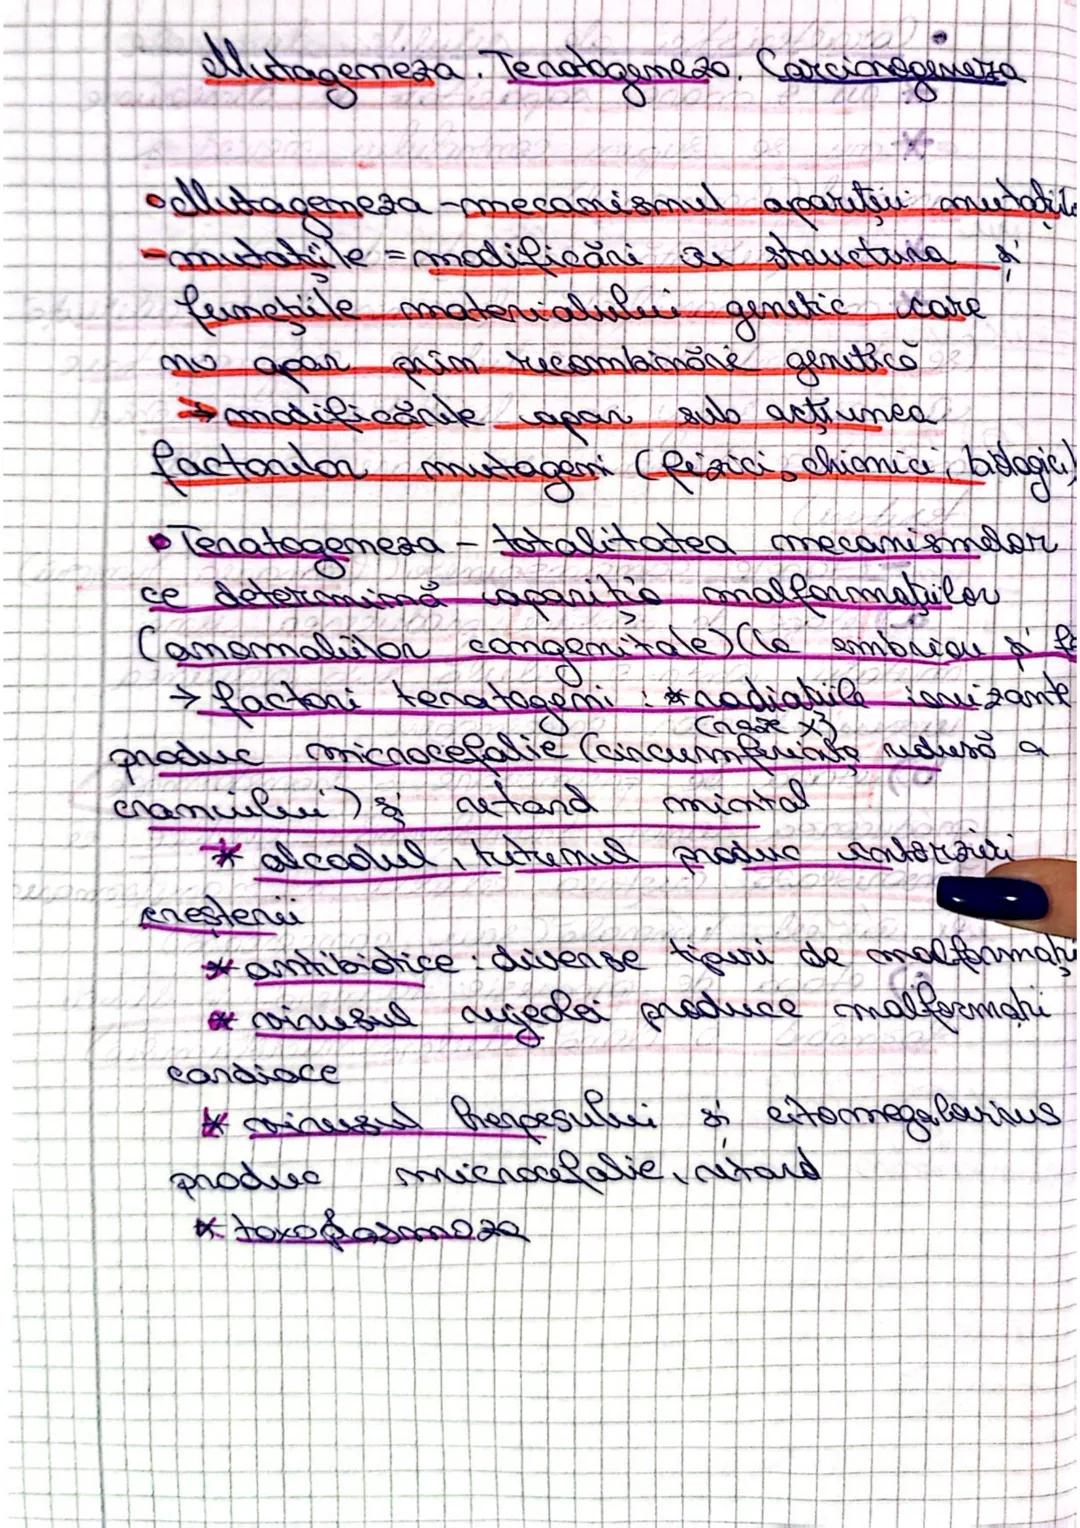 Mutageneza. Teratogeneza. Carcinogeneza
• Mutageneza - mecanismul apariției mutațiil
- mutațiile = modificări in structura și
funcțiile materialului genetic care
nu apar prin recombinare genetică
→ modificările apar sub acțiunea
factorilor mutageni (fizici, chimici, biologici)
• Teratogeneza - totalitatea mecanismelor
ce determină apariția malformațiilor
(anomaliilor congenitale) (la embrion și f
→ factori teratogeni : * radiațiile ionizante
(raze x)
produc microcefalie (circumferința redusă a
craniului) și retard mintal
* alcoolul, tutunul produc întârzieri
creșterii
* antibiotice : diverse tipuri de malformații
* virusul rujeolei produce malformații
cardiace
* virusul herpesului și citomegalovirus
produc microcefalie, retard
* toxoplasmoza